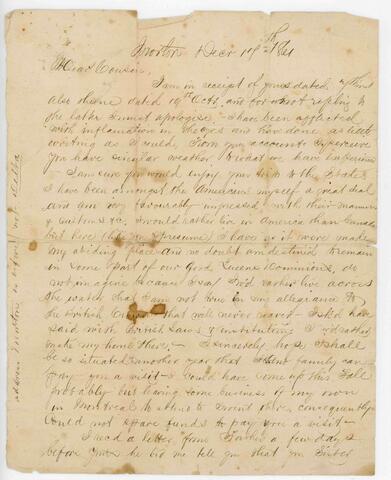 Morton Decr 19th /61
Dear Cousin,
I am in receipt of yours dated
also of one dated 19th Octr, and for not replying to
the latter I must apologise - I have been afflicted
with inflamation in the eyes and have done as little
writing as I could, From your account I perceive
you have similar weather to what we have experienced
- I am sure you would enjoy your trip to the States
I have been amongst the Americans myself a great deal
and am very favourably impressed with their manners
& customs &c, I would rather live in America than Canada
but here (like you I presume) I have as it were made
my abiding place and no doubt am destined to remain
in some part of our Good Queens Dominions, do
not imagine because I say I'd rather live across
the water that I am not true in my allegiance to
the British Crown that will never
said with British Laws & institutions I'd rather
make my home there - I sincerely hope I shall
be so situated another year that I & family can
pay you a visit - I would have come up this Fall
probably but having some business of my own
in Montreal to attend to I went there, consequently
could not spare funds to pay you a visit -
I recd a letter from Father a few days
before yours he bid me tell you that your Sister
address Morton in future not Delta